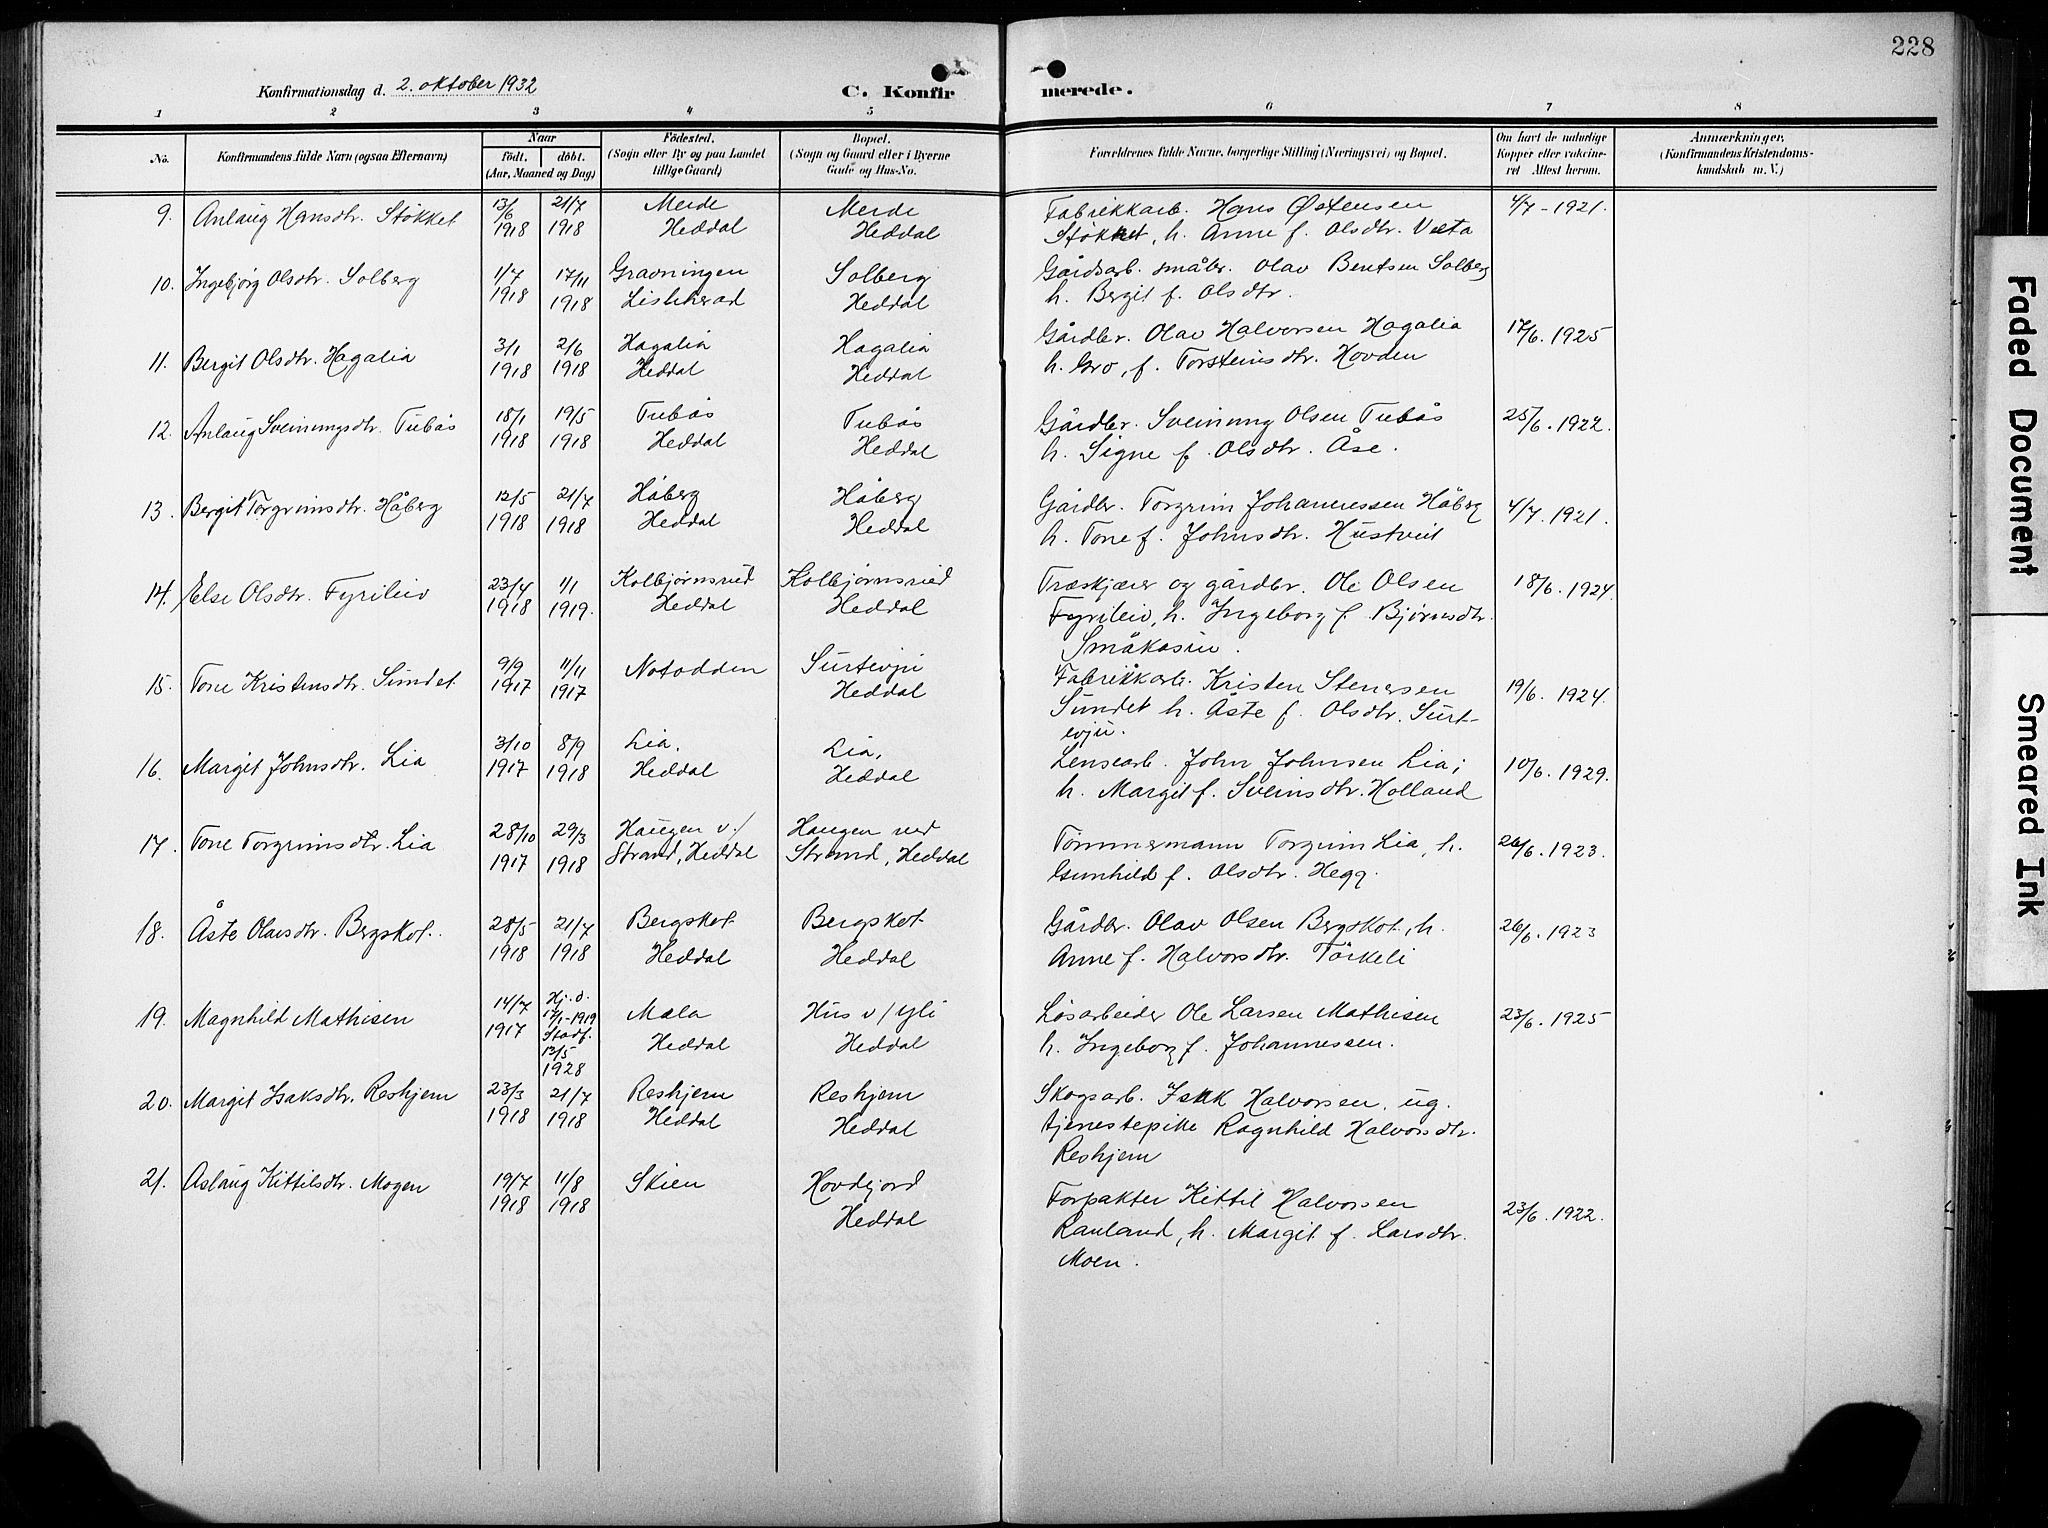 228
Konfirmationsdag d. 2. oktober 1932
C. Konfirmerede.
1 2 3 4 5 6 7 8
No.
Konfirmandens fulde Navn (ogsaa Efternavn)
Naar
født. døbt.
(Aar, Maaned og Dag)
Fødested.
(Sogn eller By og paa Landet
tillige Gaard)
Bopæl.
(Sogn og Gaard eller i Byerne
Gade og Hus-No.
Forældrenes fulde Navne, borgerlige Stilling (Næringsvei) og Bopæl.
Om havt de naturlige
Kopper eller vakcine-
ret Attest herom.
Anmærkninger.
(Konfirmandens Kristendoms-
kundskab m. V.)
9. Anlaug Hansdtr. Støkket 13/6 21/7 Merde Merde Fabrikkarb. Hans Østensen 4/7-1921.
1918 1918 Heddal Heddal Støkket, h. Anne f. Olsdtr.
10. Ingebjørg Olsdtr. Solberg 1/7 17/11 Gravningen Solberg Gårdsarb. småbr. Olav Bentsen Solberg
1918 1918 Heddal h. Bergit f. Olsdtr.
11. Bergit Olsdtr. Hagalia 3/1 2/6 Hagalia Hagalia Gårdbr. Olav Halvorsen Hagalia 17/6. 1925
1918 1918 Heddal Heddal h. Gro, f. Torsteinsdtr. Hovden
12. Anlaug Sveinungsdtr. Tubås 18/1 19/5 Tubås Tubås Gårdbr. Sveinung Olsen Tubås 25/6. 1922.
1918 1918 Heddal Heddal h. Signe f. Olsdtr. Åse.
13. Bergit Torgrimsdtr. Håberg 12/5 21/7 Håberg Håberg Gårdbr. Torgrim Johannessen Håberg 4/7. 1921.
1918 1918 Heddal Heddal h. Tone f. Johnsdtr. Hustveit
14. Else Olsdtr. Fyrileiv 23/4 1/1 Kolbjørnsrud Kolbjørnsrud Træskjærer og gårdbr. Ole Olsen 18/6. 1924.
1918 1919. Heddal Heddal Fyrileiv, h. Ingeborg f. Bjørnsdtr.
Småkasin.
15. Tone Kristensdtr. Sundet 9/9 11/11 Notodden Surtevju Fabrikkarb. Kristen Stenersen 19/6. 1924.
1917 1917 Heddal Sundet h. Åste f. Olsdtr. Surt-
evju.
16. Margit Johnsdtr. Lia 3/10 8/9 Lia, Lia, Lensearb. John Johnsen Lia; 10/6. 1929.
1917 1918 Heddal Heddal h. Margit f. Sveinsdtr. Holland
17. Tone Torgrimsdtr. Lia 28/10 29/3 Haugen v./ Haugen ved Tømmermann Torgrim Lia, h. 26/6. 1923.
1917 1918 Strand, Heddal Strand, Heddal Gunhild f. Olsdtr. Hegg.
18. Åste Olavsdtr. Bergskot. 28/5 21/7 Bergskot Bergskot Gårdbr. Olav Olsen Bergskot, h. 26/6. 1923
1918 1918 Heddal Heddal Anne f. Halvorsdtr. Tørkeli
19. Magnhild Mathisen 14/7 Hj.d. Mæla Hus v/ Yli Løsarbeider Ole Larsen Mathisen 23/6. 1925
1917 17/1-1919 Heddal Heddal h. Ingeborg f. Johannessen.
Stadf.
13/5
1928
20. Margit Isaksdtr. Reskjem 23/3 21/7 Reskjem Reskjem Skogsarb. Isak Halvorsen, ug.
1918 1918 Heddal Heddal tjenestepike Ragnhild Halvorsdtr.
Reskjem
21. Aslaug Kittilsdtr. Mogen 19/7 11/8 Skien Hovdejord Forpakter Kittil Halvorsen 23/6. 1922.
1918 1918 Heddal Rauland, h. Margit f. Larsdtr.
Moen.
Faded Document
Smeared Ink